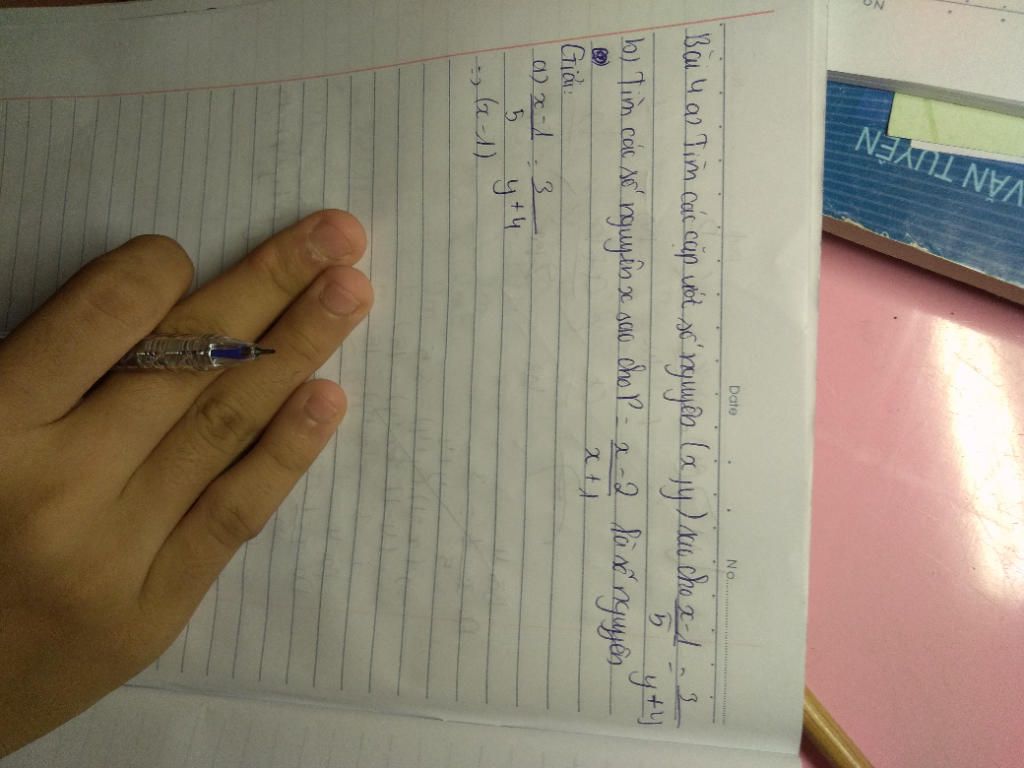 Date
No.
Bài 4 a) Tìm các cặp số nguyên (x,y) sao cho x-1/5 = 3/y+4
b) Tìm các số nguyên x sao cho P = x-2/x+1 là số nguyên
Giải:
a) x-1/5 = 3/y+4
=> (x-1)
VĂN TUYÊN
NO